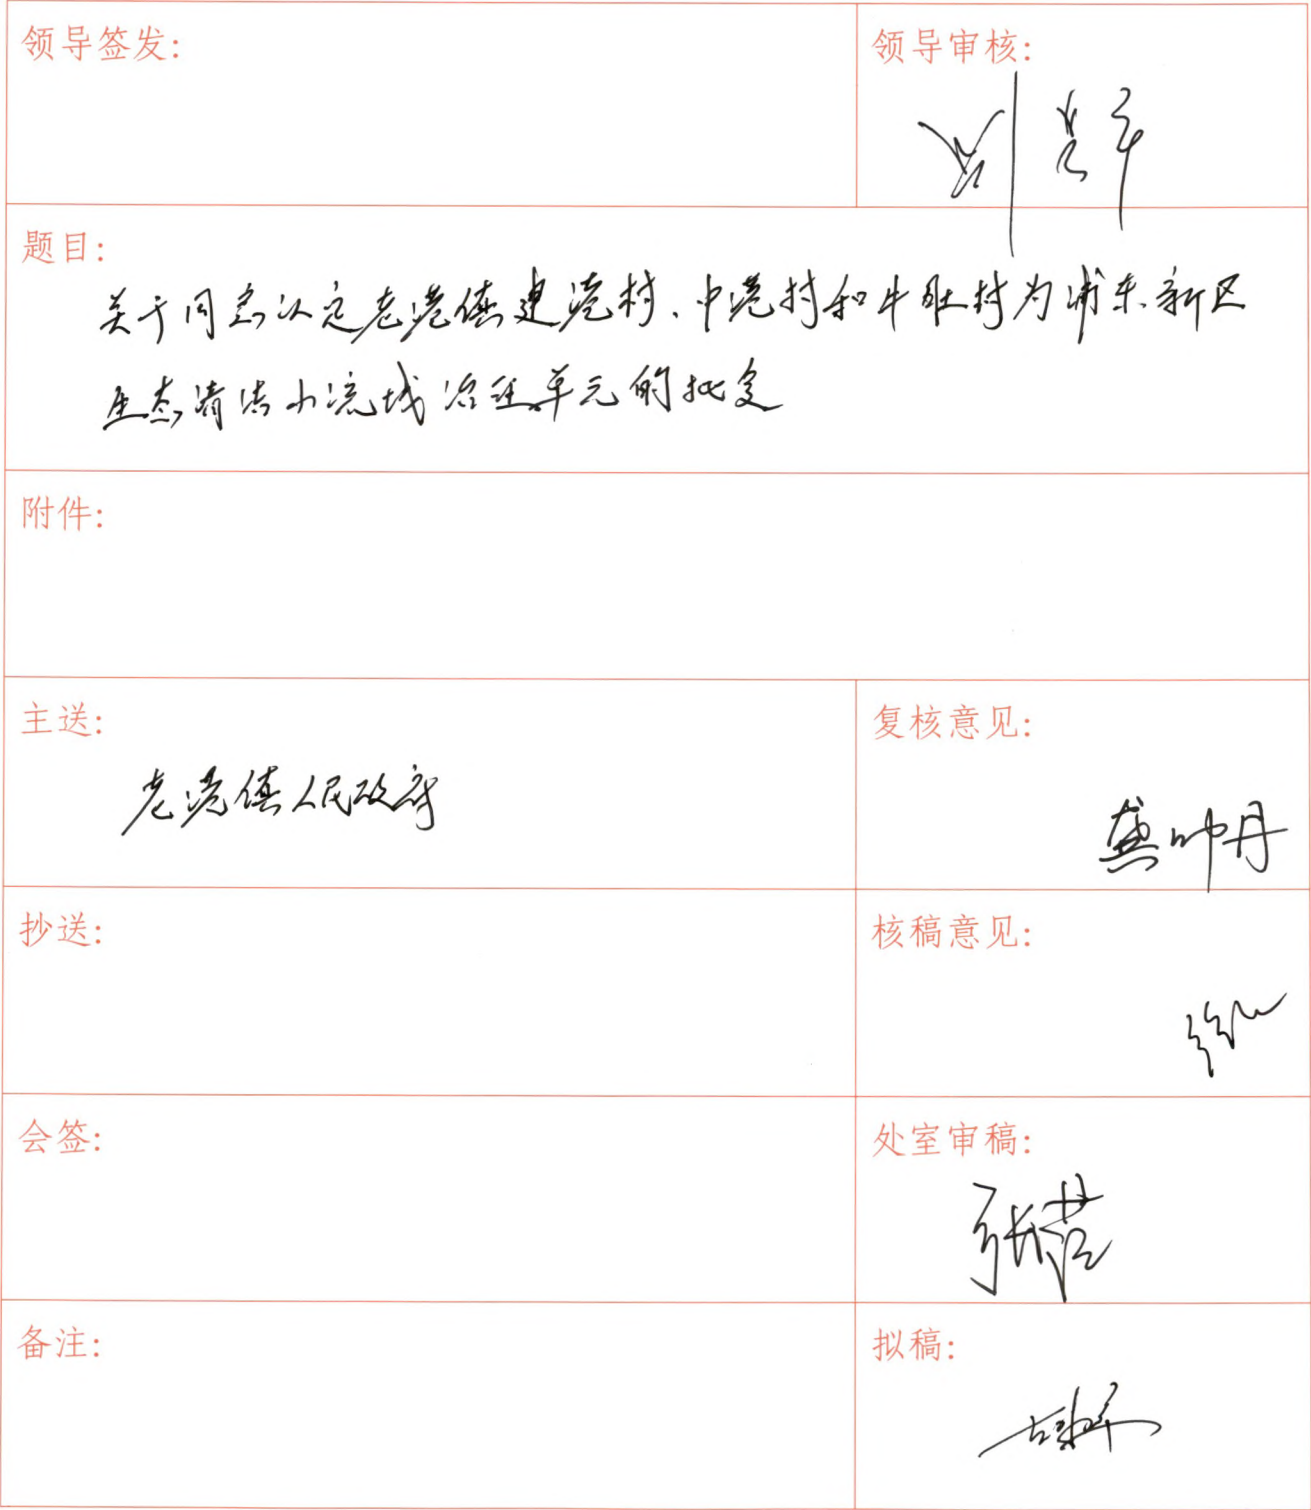 领导签发:
领导审核:
刘
题目:
关于同意认定老港镇建港村、中港村和牛肚村为浦东新区
生态清洁小流域治理单元的批复
附件:
主送:
老港镇人民政府
复核意见:
龚帅丹
抄送:
核稿意见:
徐
会签:
处室审稿:
张
备注:
拟稿: